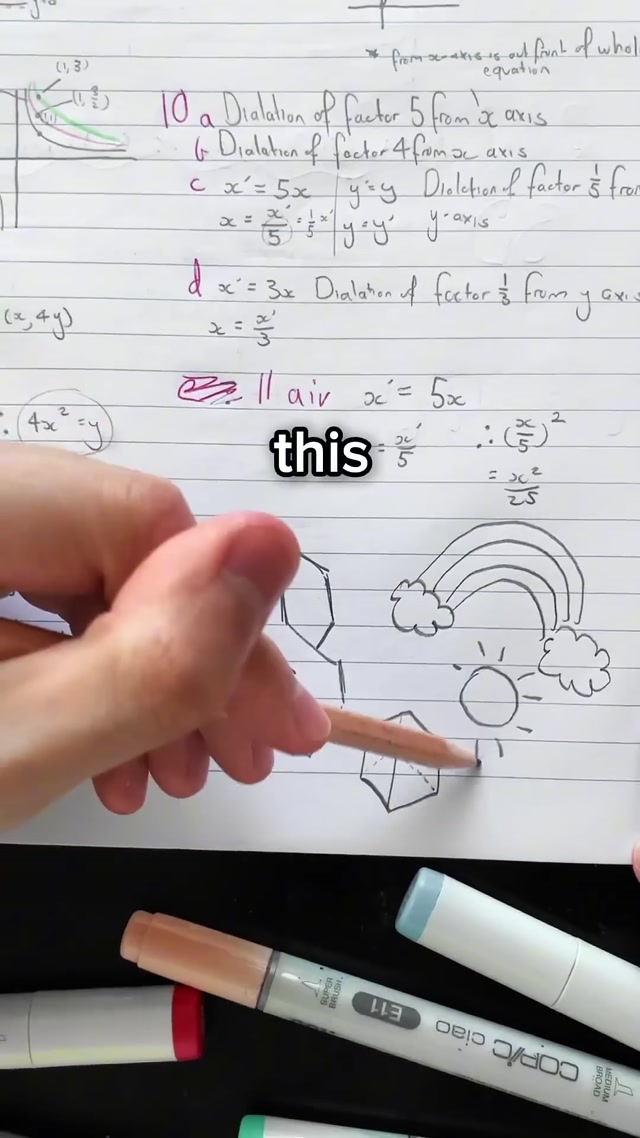 * from x-axis is out front of whol
equation
(1, 3)
10 a Dialation of factor 5 from x axis
b Dialation of factor 4 from x axis
c x' = 5x | y' = y Dialation of factor 1/5 from
x = x'/5 = 1/5 x' | y = y' y-axis
d x' = 3x Dialation of factor 1/3 from y axis
x = x'/3
(x, 4y)
11 ai x' = 5x
∴ 4x² = y
= x'/5 ∴ (x/5)²
= x²/25
this
SUPER BRUSH E11 COPIC ciao MEDIUM BROAD